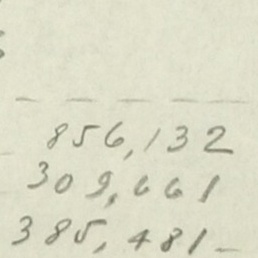 856,132
309,661
385,481